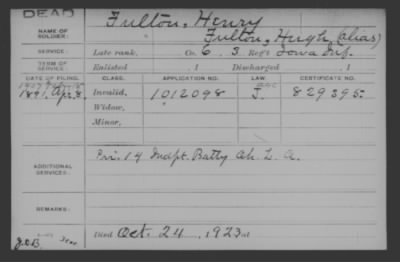 DEAD
NAME OF SOLDIER: Fulton, Henry
Fulton, Hugh (alias)
SERVICE: Late rank, Co. G, 3 Reg't Iowa Inf.
TERM OF SERVICE: Enlisted , 1 Discharged , 1
DATE OF FILING. CLASS. APPLICATION NO. LAW. CERTIFICATE NO.
1891, Apr. 8 Invalid, 1012098 J. 829395
Widow,
Minor,
ADDITIONAL SERVICES: Pri. 14 Indpt. Batty Oh. L. A.
REMARKS:
Died Oct. 24, 1923 at